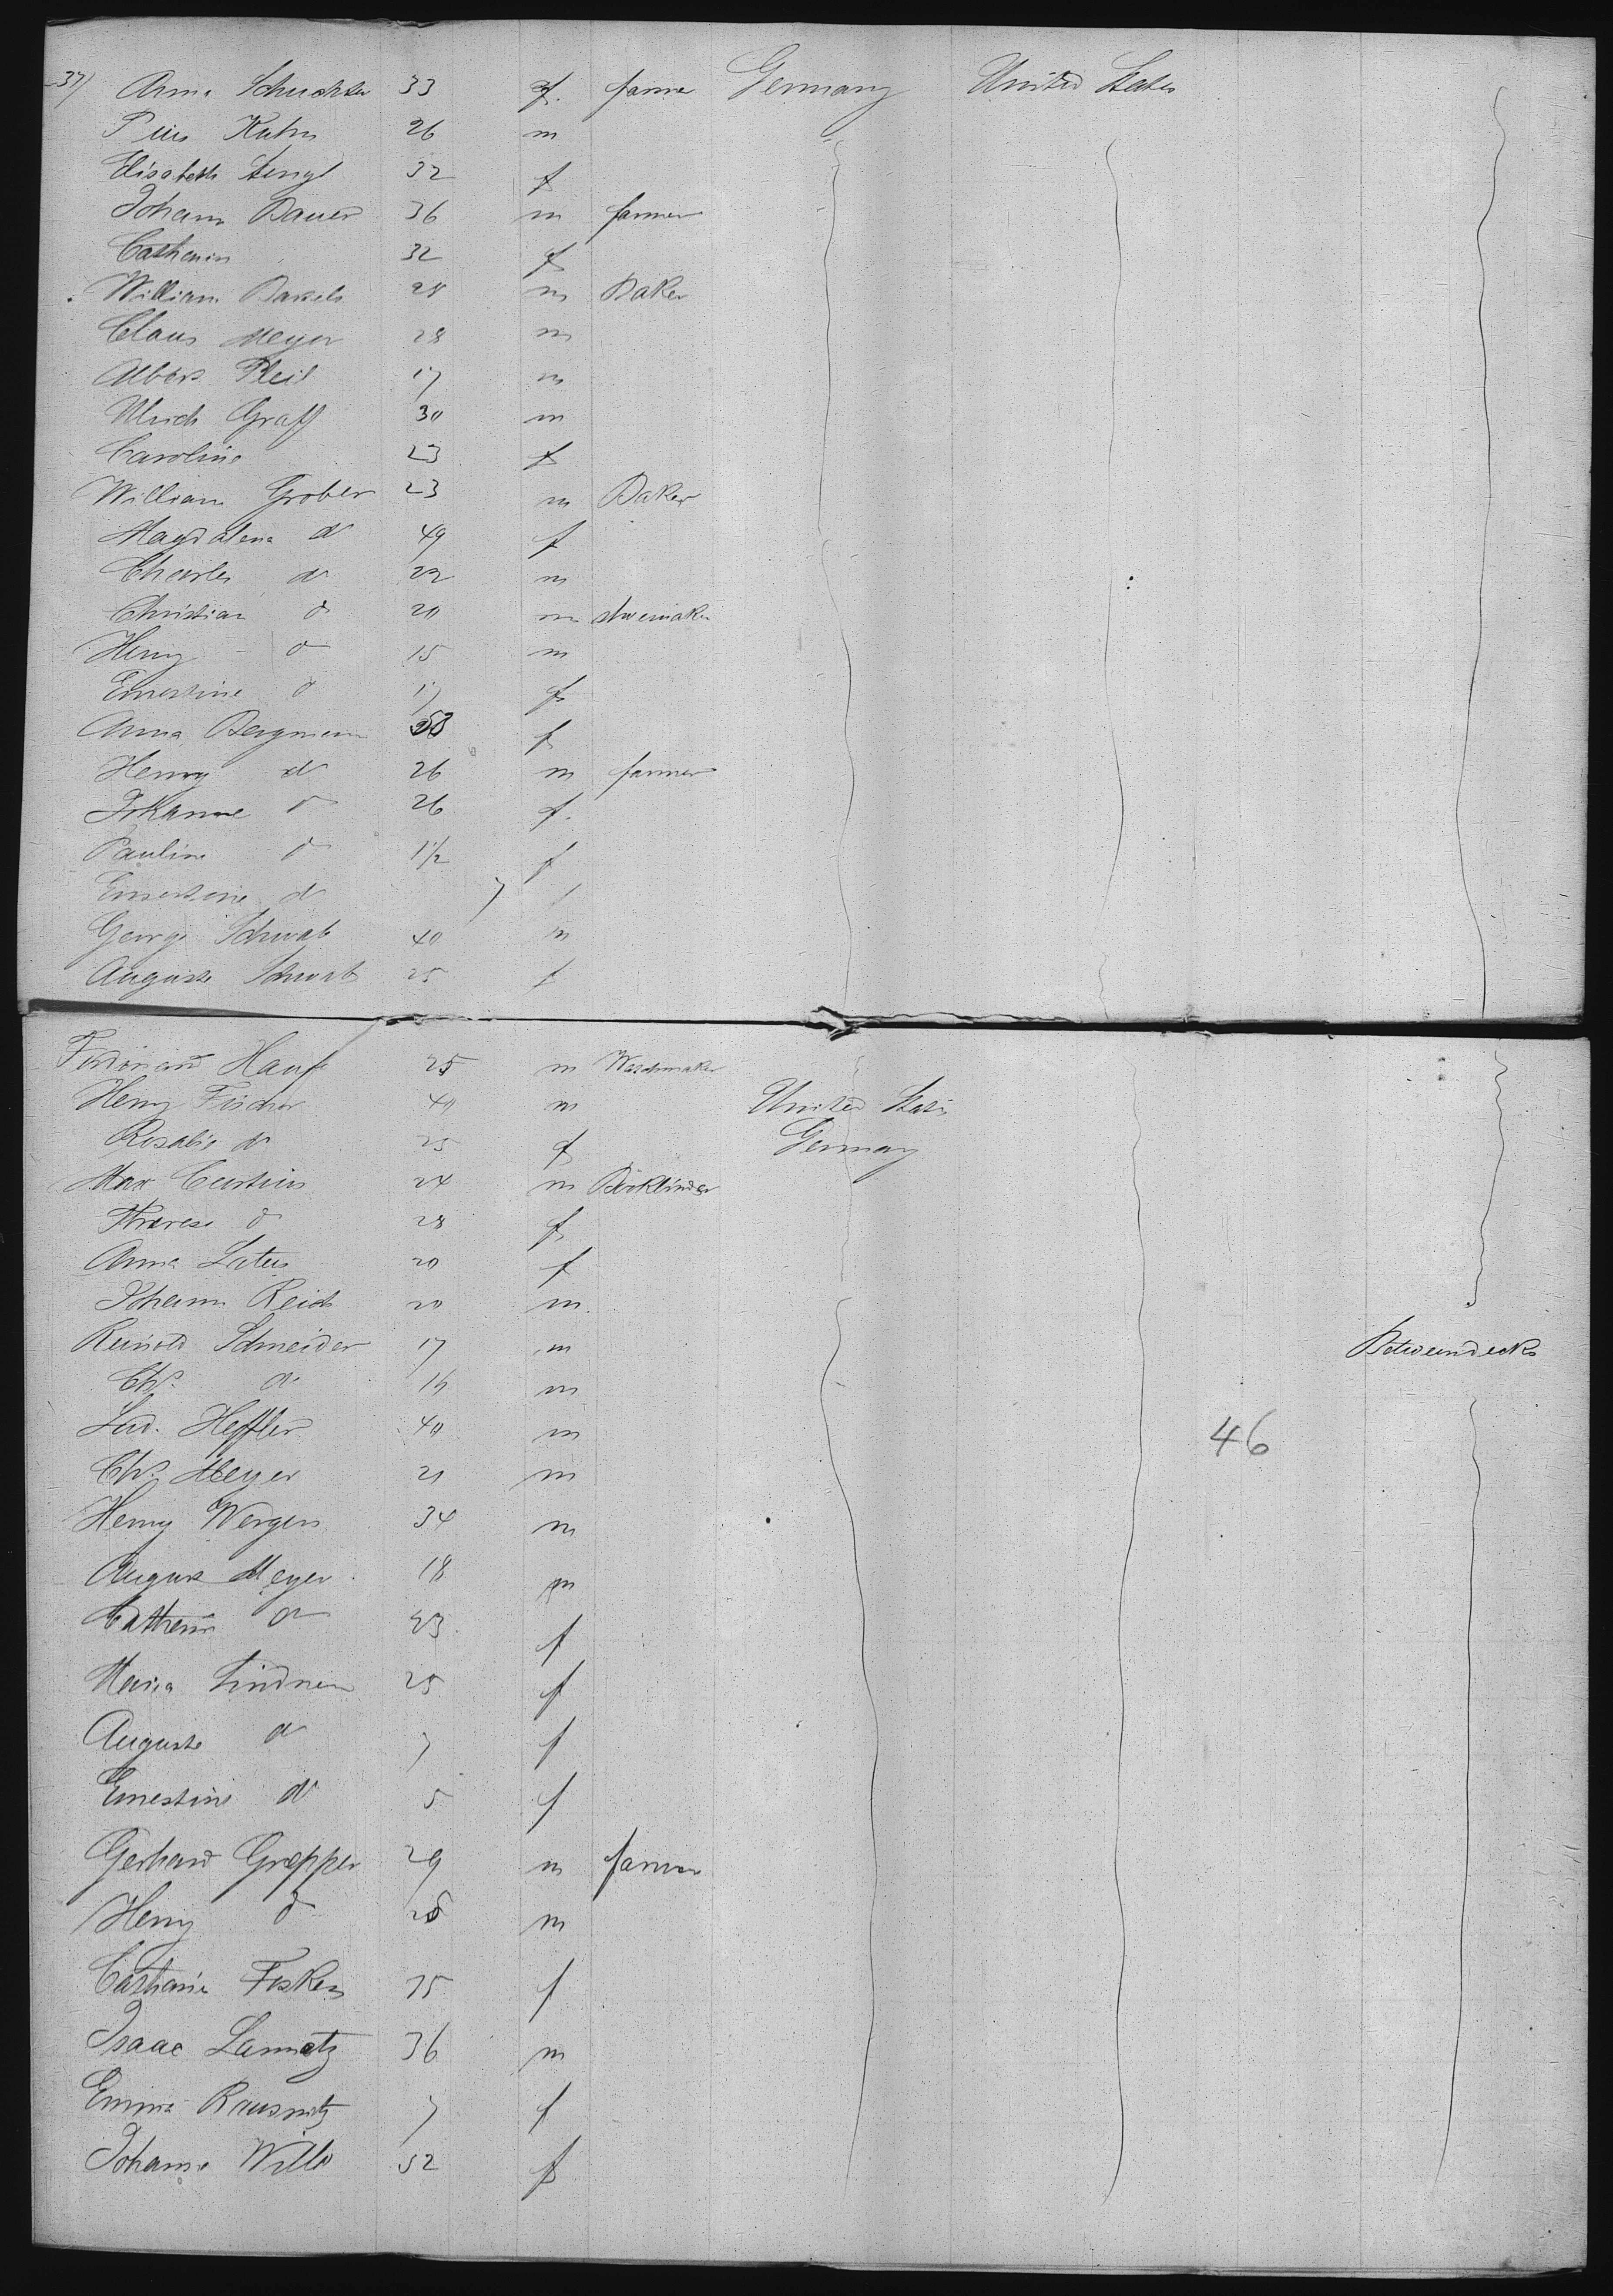 37) Anna Schuchter 33 f. farmer Germany United States
Pius Kuhn 26 m
Elisabeth Stengl 32 f
Johann Bauer 36 m farmer
Catharin 32 f
William Bartels 28 m Baker
Claus Meyer 28 m
Albert Pleil 17 m
Ulrich Graff 30 m
Caroline 23 f
William Grober 23 m Baker
Magdalena do 49 f
Charles do 22 m
Christian do 20 m shoemaker
Henry do 15 m
Ernestine do 17 f
Anna Bergmann f
Henry do 26 m farmer
Johanne do 26 f.
Pauline do 1 1/2 f
Ernestine do 7 f
George Schwab 40 m
Auguste Schwab 25 f
Ferdinand Haufe 25 m Watchmaker
Henry Fischer 40 m United States
Rosalie do 25 f Germany
Max 24 m Bookbinder
Therese do 28 f
Anna Latus 20 f
Johann Reich 20 m.
Reinold Schneider 17 m Betweendecks
Chs. do 16 m
Lud. Heffler 40 m 46
Chs. Meyer 21 m
Henry Wergen 34 m
August Meyer 18 m
Catharin do 23 f
Maria Lindner 25 f
Auguste do 7 f
Ernestine do 5 f
Gerhard Grepper 29 m farmer
Henry do m
Catharin Fosken f
Isaac Lametz 36 m
Emma Rausnitz 7 f
Johanne Wille 52 f